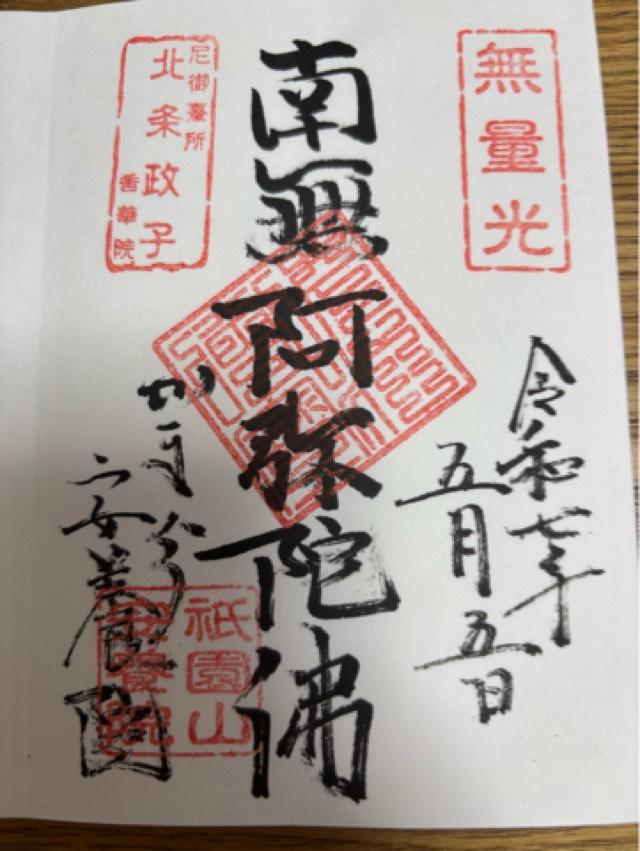 無量光
令和七年
五月五日
南無阿弥陀佛
尼御臺所
北条政子
香華院
安養院
祇園山
安養院